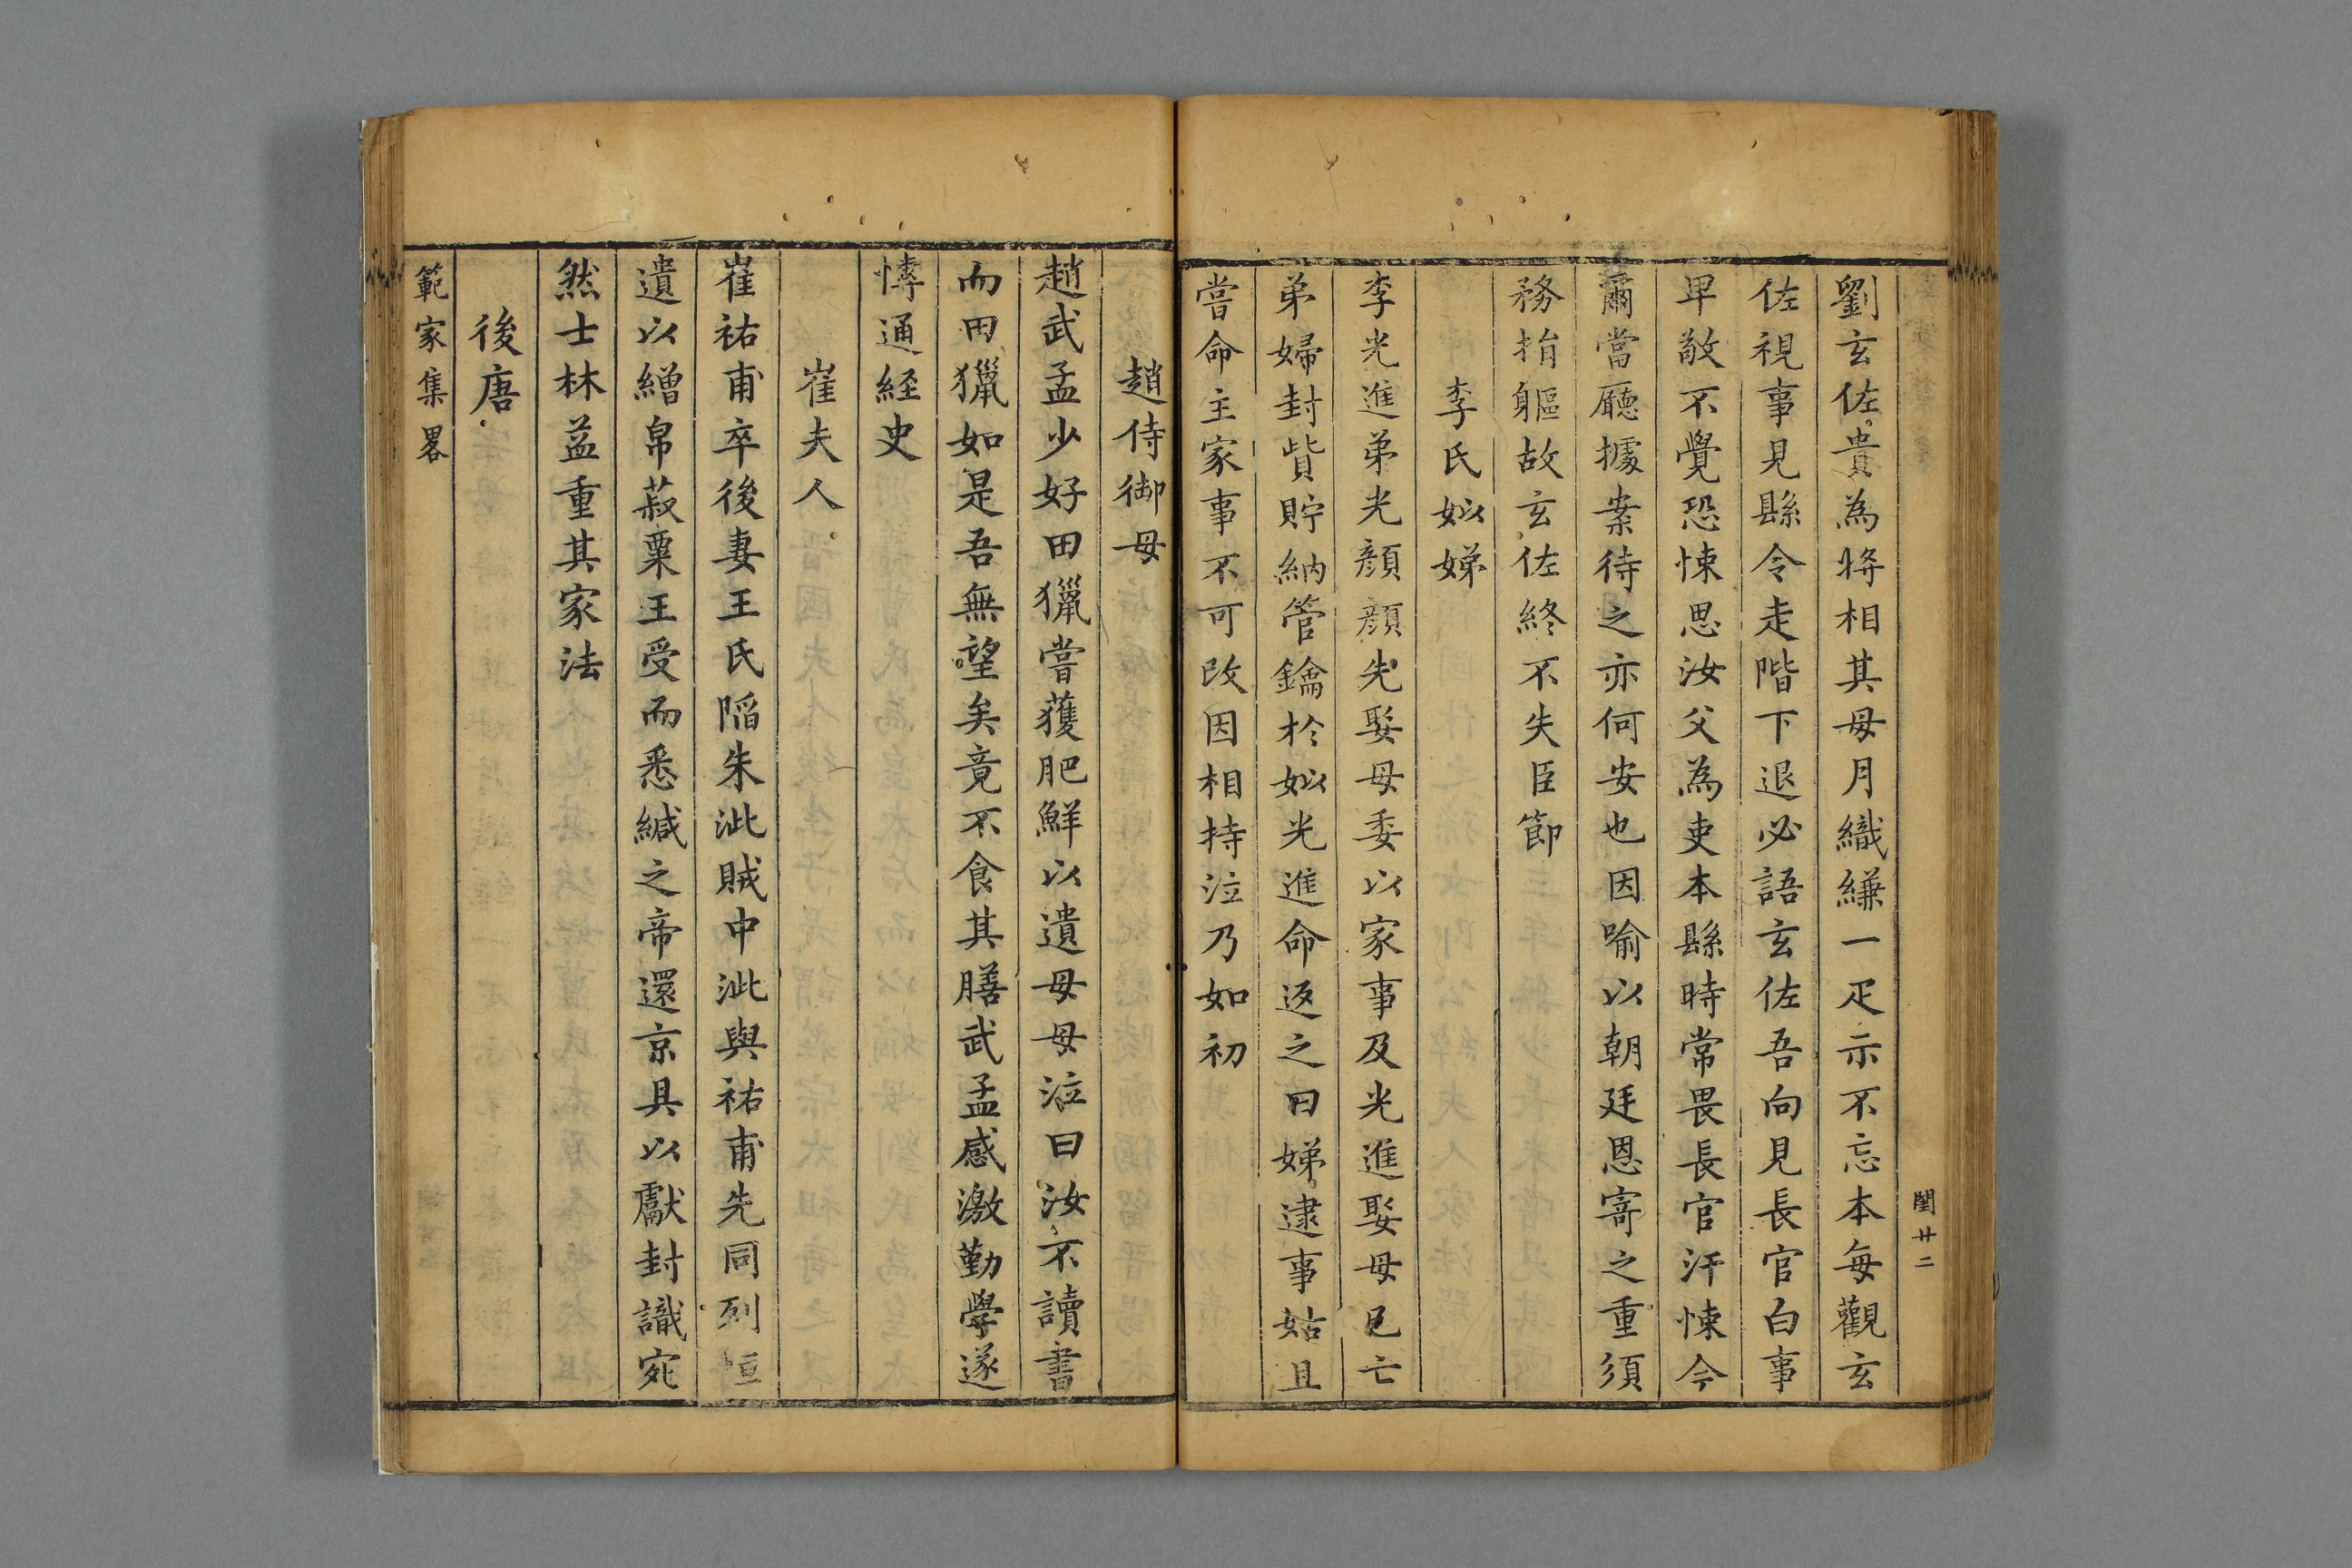 閨廿二
劉玄佐貴為將相其母月織縑一疋示不忘本每觀玄
佐視事見縣令走階下退必語玄佐吾向見長官白事
卑敬不覺恐悚思汝父為吏本縣時常畏長官汗悚今
爾當廳據案待之亦何安也因喻以朝廷恩寄之重須
務捐軀故玄佐終不失臣節
李氏姒娣
李光進弟光顏顏先娶母委以家事及光進娶母已亡
弟婦封貲貯納管鑰於姒光進命返之曰娣逮事姑且
嘗命主家事不可改因相持泣乃如初
趙侍御母
趙武孟少好田獵嘗獲肥鮮以遺母母泣曰汝不讀書
而田獵如是吾無望矣竟不食其膳武孟感激勤學遂
愽通経史
崔夫人
崔祐甫卒後妻王氏陷朱泚賊中泚與祐甫先同列恒
遺以繒帛菽粟王受而悉緘之帝還京具以獻封識宛
然士林益重其家法
後唐
範家集畧